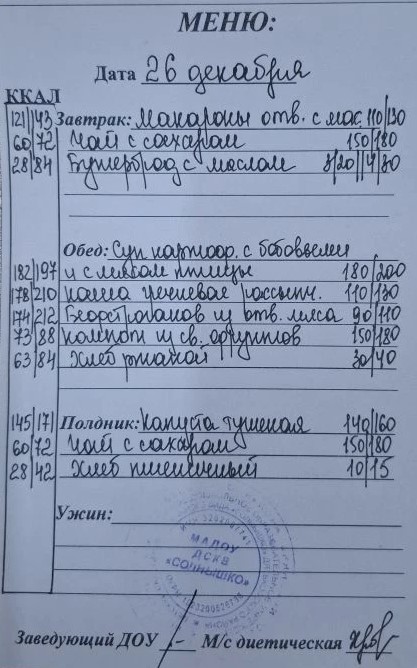 МЕНЮ:
Дата 26 декабря
ККАЛ
121/143 Завтрак: Макароны отв. с мас. 110/130
60/72 Чай с сахаром 150/180
28/84 Бутерброд с маслом 3/20//4/30
Обед: Суп картоф. с бобовыми
182/197 и с мясом птицы 180/200
178/210 каша гречневая рассыпч. 110/130
174/212 Бефстроганов из отв. мяса 90/110
73/88 компот из св. фруктов 150/180
63/84 хлеб ржаной 30/40
145/171 Полдник: Капуста тушеная 140/160
60/72 Чай с сахаром 150/180
28/42 Хлеб пшеничный 10/15
Ужин:
МАДОУ
ДСКВ
«СОЛНЫШКО»
Заведующий ДОУ М/с диетическая